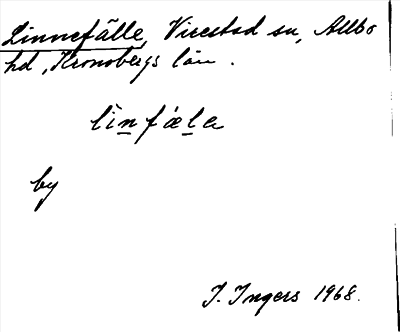 Linnefälle, Virestad sn, Allbo
hd, Kronobergs län.
lìnfæ̀la
by
I. Ingers 1968.